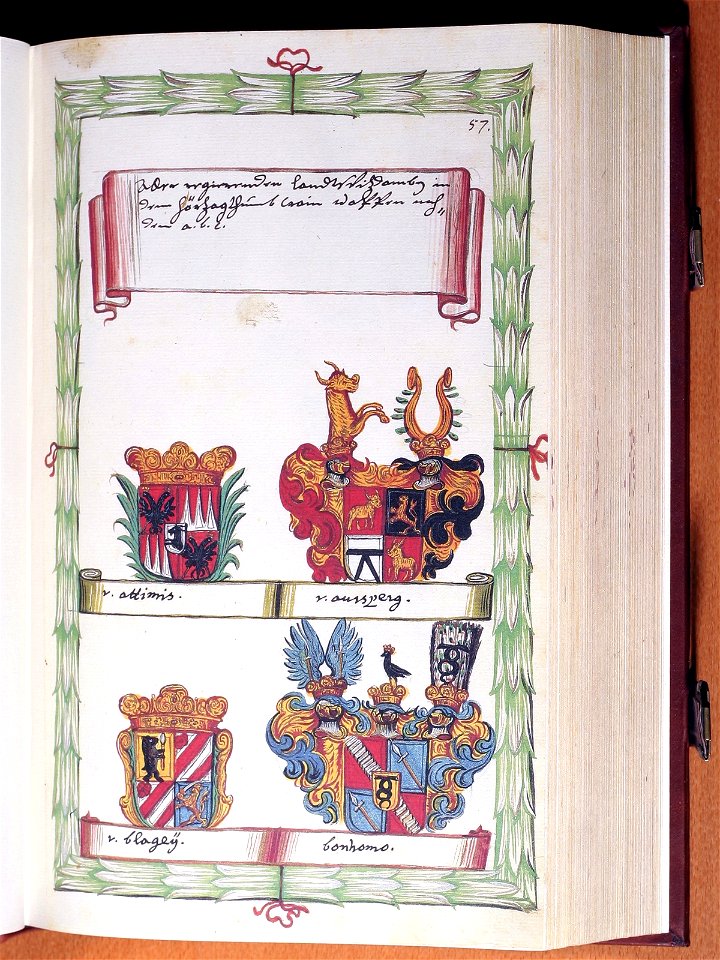 57.
Aller regierenden Landtsvi[tzdomb] in
dem Hörtzogthumb Crain Wappen nach
dem a.b.c.
v. attimis.
v. aursperg.
v. blageÿ.
bonhomo.